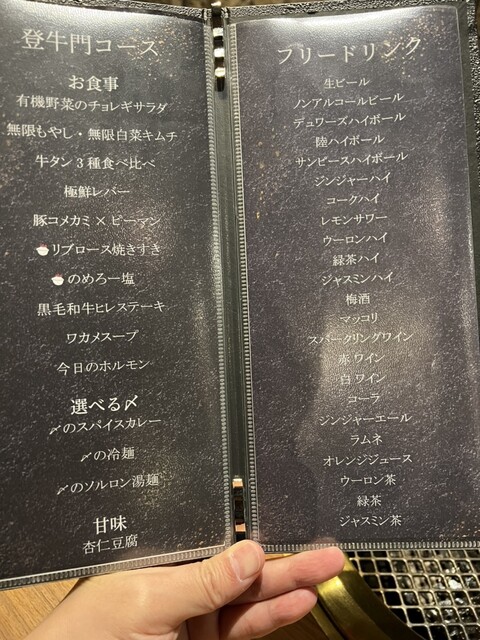 登牛門コース
お食事
有機野菜のチョレギサラダ
無限もやし・無限白菜キムチ
牛タン3種食べ比べ
極鮮レバー
豚コメカミ×ピーマン
🍚リブロース焼きすき
🍚のめろー塩
黒毛和牛ヒレステーキ
ワカメスープ
今日のホルモン
選べる〆
〆のスパイスカレー
〆の冷麺
〆のソルロン湯麺
甘味
杏仁豆腐
フリードリンク
生ビール
ノンアルコールビール
デュワーズハイボール
陸ハイボール
サンピースハイボール
ジンジャーハイ
コークハイ
レモンサワー
ウーロンハイ
緑茶ハイ
ジャスミンハイ
梅酒
マッコリ
スパークリングワイン
赤ワイン
白ワイン
コーラ
ジンジャーエール
ラムネ
オレンジジュース
ウーロン茶
緑茶
ジャスミン茶